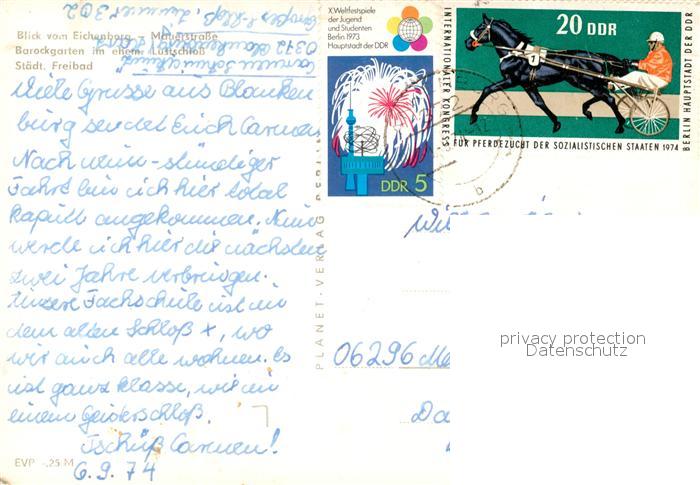 Blick vom Eichenberg - Mauerstraße
Barockgarten im ehem. Lustschloß
Städt. Freibad
Viele Grüsse aus Blanken
burg sendet Euch Carmen
Nach neun-stündiger
Fahrt bin ich hier total
kaputt angekommen. Nun
werde ich hier die nächsten
zwei Jahre verbringen.
Unsere Fachschule ist in
dem alten Schloß x, wo
wir auch alle wohnen. Es
ist ganz klasse, wie in
einem Geisterschloß.
Tschüß Carmen!
6.9.74
EVP -,25 M
Zimmer 302
0372
PLANET-VERLAG BERLIN
X. Weltfestspiele
der Jugend
und Studenten
Berlin 1973
Hauptstadt der DDR
DDR 5
INTERNATIONALER KONGRESS
FÜR PFERDEZUCHT DER SOZIALISTISCHEN STAATEN 1974
BERLIN HAUPTSTADT DER DDR
20 DDR
1
b
06296
privacy protection
Datenschutz